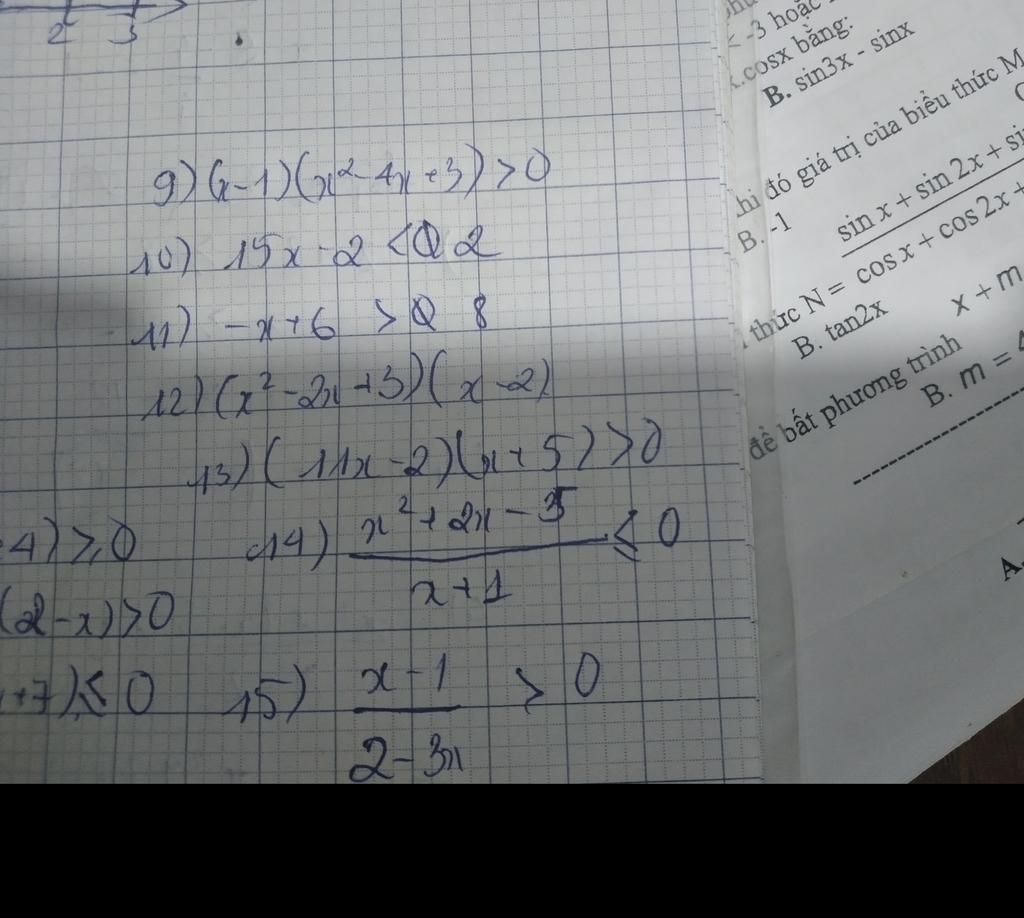 2 3
9) (x-1)(x²-4x+3)>0
10) 15x-2 < 2
11) -x+6 > 8
12) (x²-2x+3)(x-2)
13) (11x-2)(x+5)>0
4) ≥ 0 14) \frac{x²+2x-3}{x+1} ≤ 0
(2-x)>0
+7) ≤ 0 15) \frac{x-1}{2-3x} > 0
-3 hoặc
.cosx bằng:
B. sin3x - sinx
hi đó giá trị của biểu thức M
B. -1
sin x + sin 2x + si
thức N = cos x + cos 2x +
B. tan2x x + m
đề bất phương trình
B. m = 4
A.